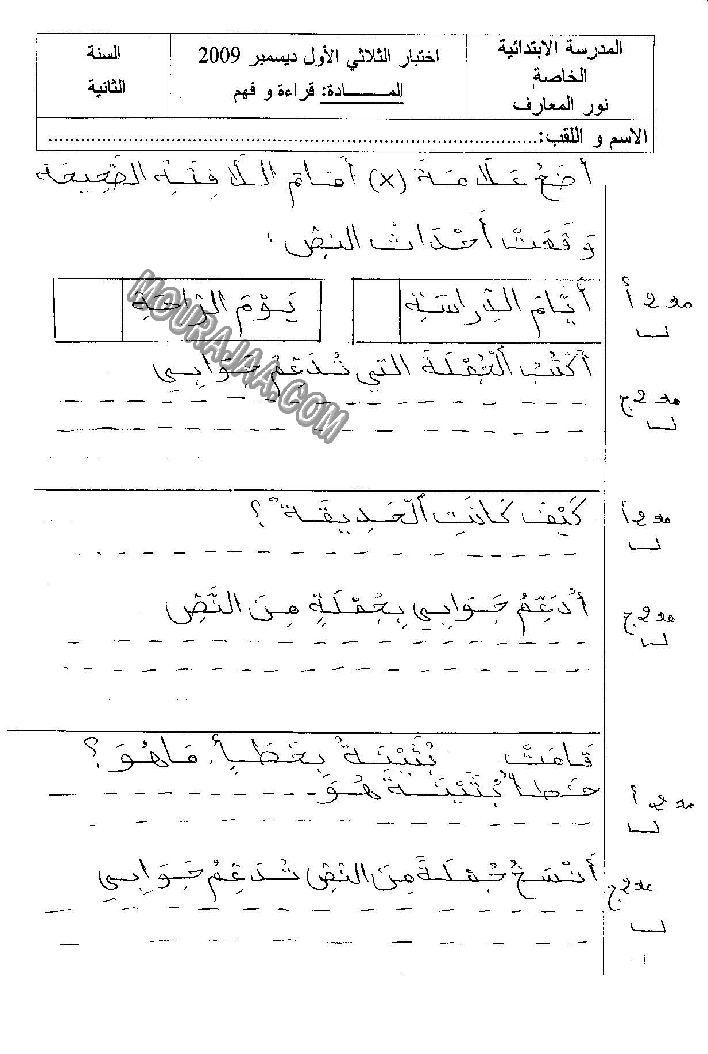 المدرسة الابتدائية
الخاصة
نور المعارف
اختبار الثلاثي الأول ديسمبر 2009
المــــــادة: قراءة و فهم
السنة
الثانية
الاسم و اللقب:........................................................................
أَضَعُ عَلَامَةَ (x) أَمَامَ اللَّافِتَةِ الصَّحِيحَة
وَقَعَتْ أَحْدَاثُ النص :
أَيَّامَ الدِّرَاسَةِ
يَوْمَ الرَّاحَةِ
مع 2 أ
أَكْتُبُ الْجُمْلَةَ التي تُدَعِّمُ جَوَابِي
مع 2 ج
كَيْفَ كَانَتِ الْحَدِيقَةُ ؟
مع 2 أ
أُدَعِّمُ جَوَابِي بِجُمْلَةٍ مِنَ النَّصِّ
مع 2 ج
قَامَتْ بُثَيْنَةُ بِخَطَأٍ. مَا هُوَ ؟
خَطَأُ بُثَيْنَةَ هُوَ
مع 2 أ
أَنْسَخُ جُمْلَةً مِنَ النص تُدَعِّمُ جَوَابِي
مع 2 ج
MOURAJAA.COM